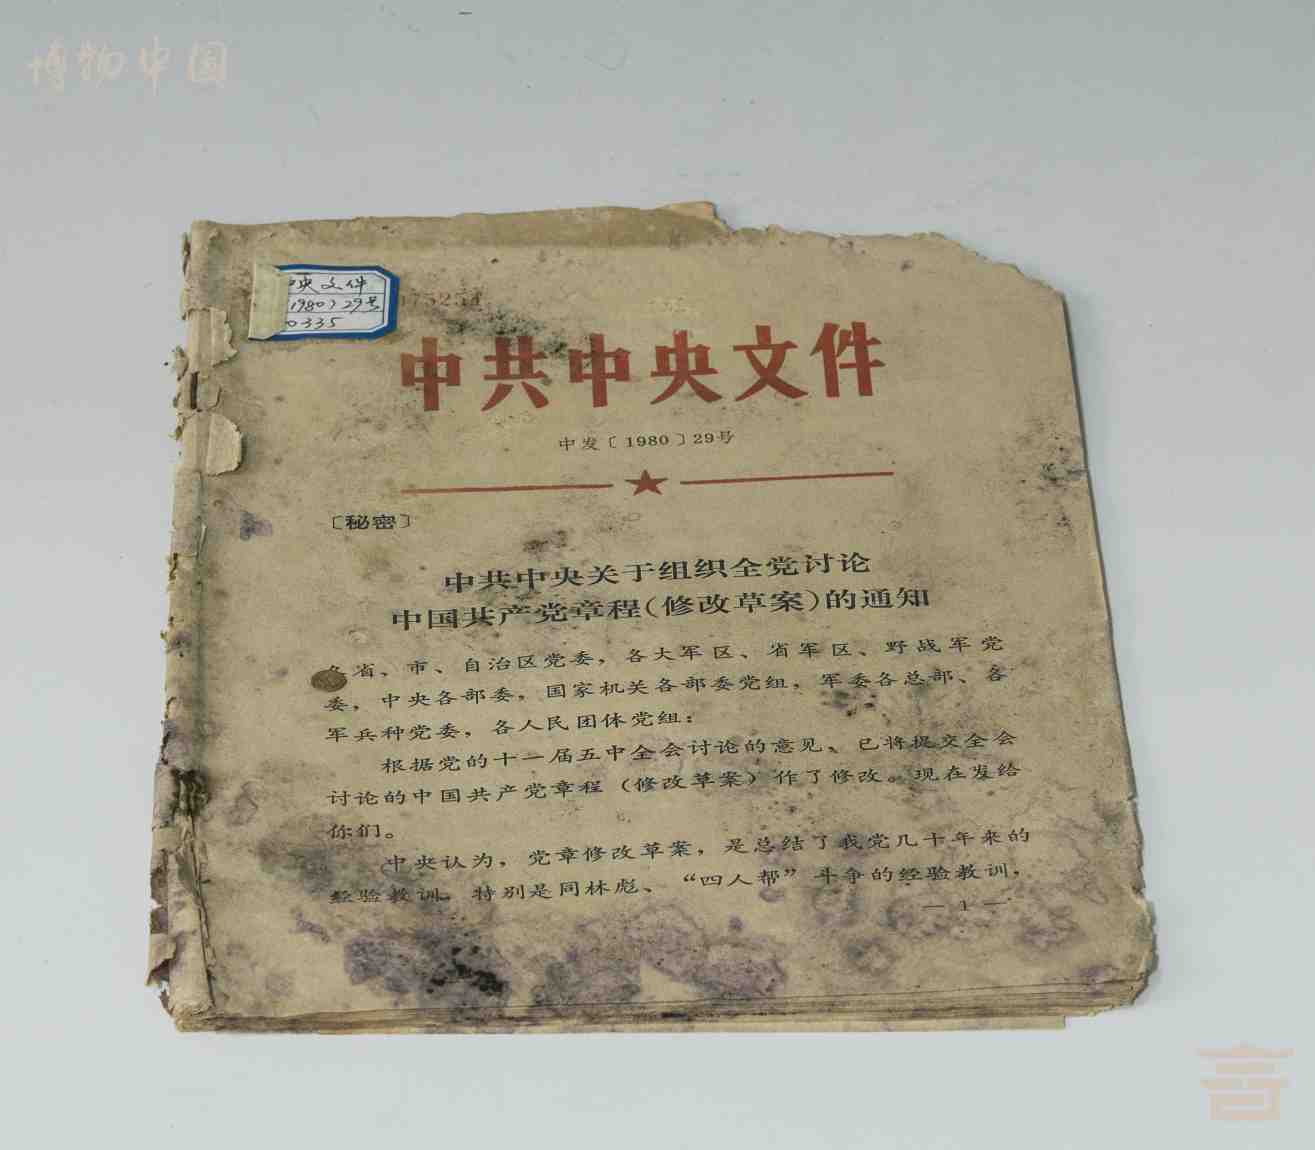 博物中国
央文件
1980）29号
0335
中共中央文件
中发〔1980〕29号
〔秘密〕
中共中央关于组织全党讨论
中国共产党章程(修改草案)的通知
省、市、自治区党委，各大军区、省军区、野战军党
委，中央各部委，国家机关各部委党组，军委各总部、各
军兵种党委，各人民团体党组：
根据党的十一届五中全会讨论的意见，已将提交全会
讨论的中国共产党章程（修改草案）作了修改。现在发给
你们。
中央认为，党章修改草案，是总结了我党几十年来的
经验教训，特别是同林彪、“四人帮”斗争的经验教训，
— 1 —